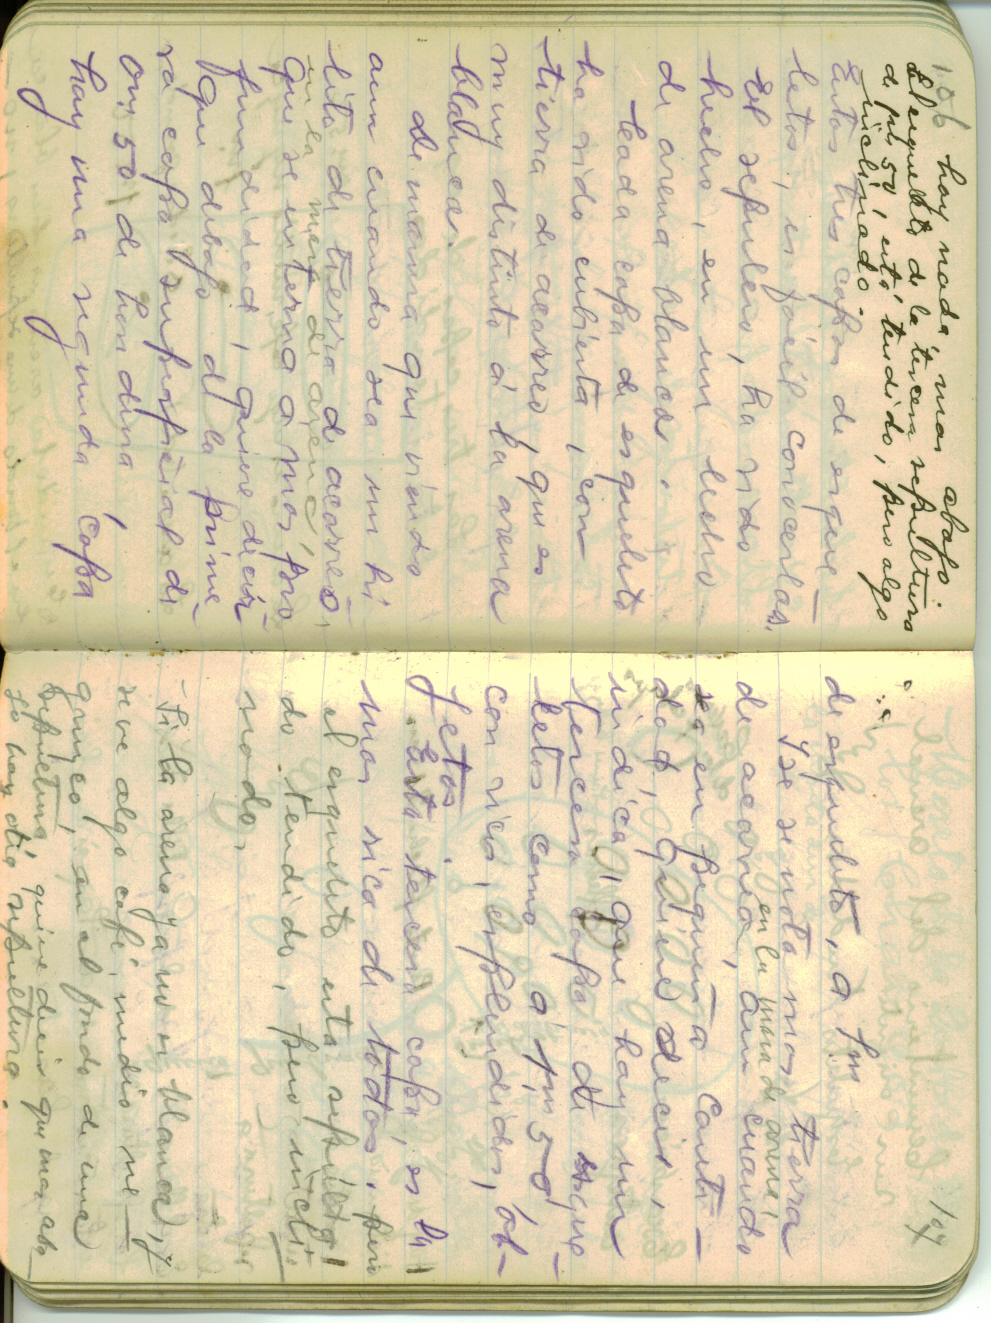 106
hay nada mas abajo.
El esqueleto de la tercera sepultura
de 1m 50, está tendido, pero algo
inclinado.
Estas tres capas de esque-
letos, es fácil conocerlas.
El sepulcro, ha sido
hecho, en un lecho
de arena blanca.
Cada capa de esqueleto
ha sido cubierta, con
tierra de acarreo, que es
muy distinto á la arena
blanca.
De manera que viendo
aun cuando sea un hi
lito de tierra de acarreo
en la mesa de arena,
que se interna a mas pro
fundidad, quiere decir
que debajo de la prime-
ra capa superficial de
0m,50 de hondura,
hay una segunda capa
107
de esqueleto, a 1m
Y se se nota mas tierra
de acarreo, aun cuando
en la masa de arena,
sea en pequeña canti-
dad, quiere decir,
indica, que hay una
tercera capa de esque
letos como á 1m,50
con ricos, esplendidos, ob-
jetos.
Esta tercera capa, es la
mas rica de todas, pero
el esqueleto esta sepulta
do tendido, pero incli-
nado.
- Si la arena ya no es blanca, y
se ve algo café, medio ne-
gruzco, en el fondo de una
sepultura, quiere decir que mas aba-
jo hay otra sepultura.